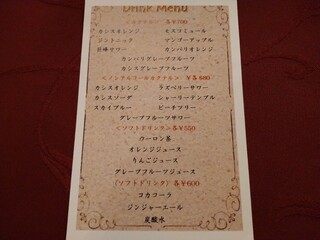 Drink Menu
<カクテル> 各¥700
カシスオレンジ モスコミュール
ジントニック マンゴーアップル
巨峰サワー カンパリオレンジ
カンパリグレープフルーツ
カシスグレープフルーツ
<ノンアルコールカクテル> 各¥600
カシスオレンジ ラズベリーサワー
カシスソーダ シャーリーテンプル
スカイブルー ピーチツリー
グレープフルーツサワー
<ソフトドリンク> 各¥550
ウーロン茶
オレンジジュース
りんごジュース
グレープフルーツジュース
<ソフトドリンク> 各¥600
コカコーラ
ジンジャーエール
炭酸水